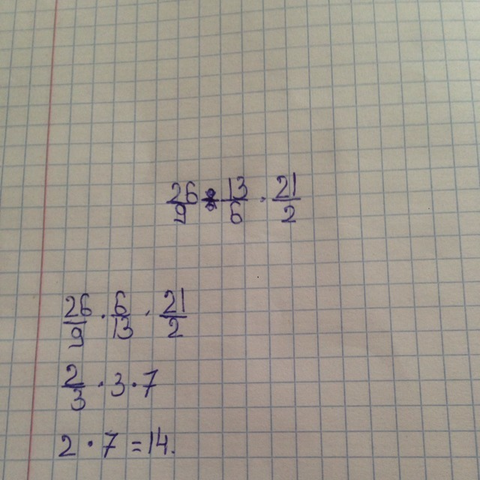 26/9 : 13/6 · 21/2
26/9 · 6/13 · 21/2
2/3 · 3 · 7
2 · 7 = 14.